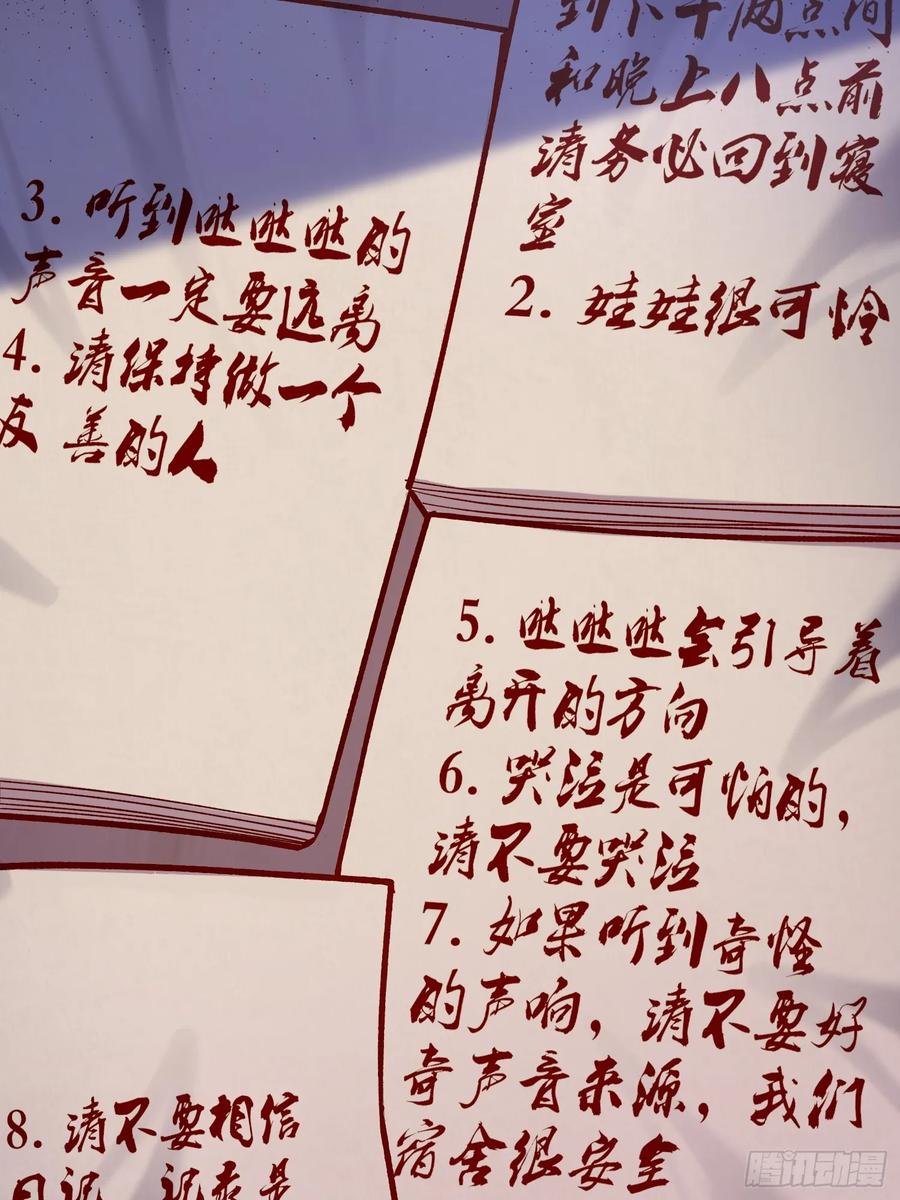 到下午两点间
和晚上八点前
请务必回到寝
室
2. 娃娃很可怜
3. 听到哒哒哒的
声音一定要远离
4. 请保持做一个
友 善的人
5. 哒哒哒会引导着
离开的方向
6. 哭泣是可怕的，
请不要哭泣
7. 如果听到奇怪
的声响，请不要好
奇声音来源，我们
宿舍很安全
8. 请不要相信
日记，记录是
腾讯动漫